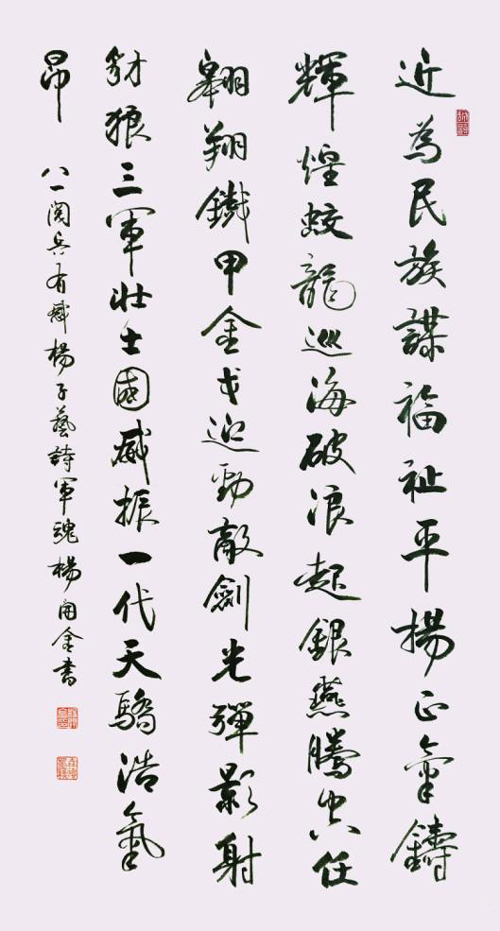 近為民族謀福祉平揚正氣鑄
輝煌蛟龍巡海破浪起銀燕騰空任
翱翔鐵甲金戈迎勁敵劍光彈影射
豺狼三軍壯士國威振一代天驕浩氣
昂
八一閱兵有感楊子藝詩軍魂楊金書